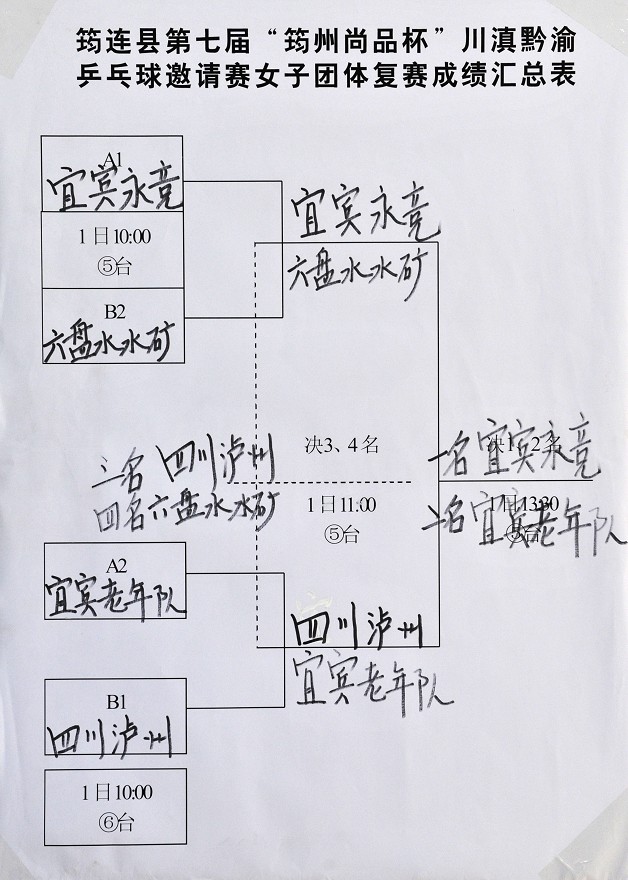 筠连县第七届“筠州尚品杯”川滇黔渝
乒乓球邀请赛女子团体复赛成绩汇总表
A1
宜宾永竞
1日10:00
⑤台
B2
六盘水水矿
宜宾永竞
六盘水水矿
决3、4名
1日11:00
⑤台
三名 四川泸州
四名六盘水水矿
决1、2名
一名宜宾永竞
1日13:30
二名宜宾老年队
A2
宜宾老年队
四川泸州
宜宾老年队
B1
四川泸州
1日10:00
⑥台